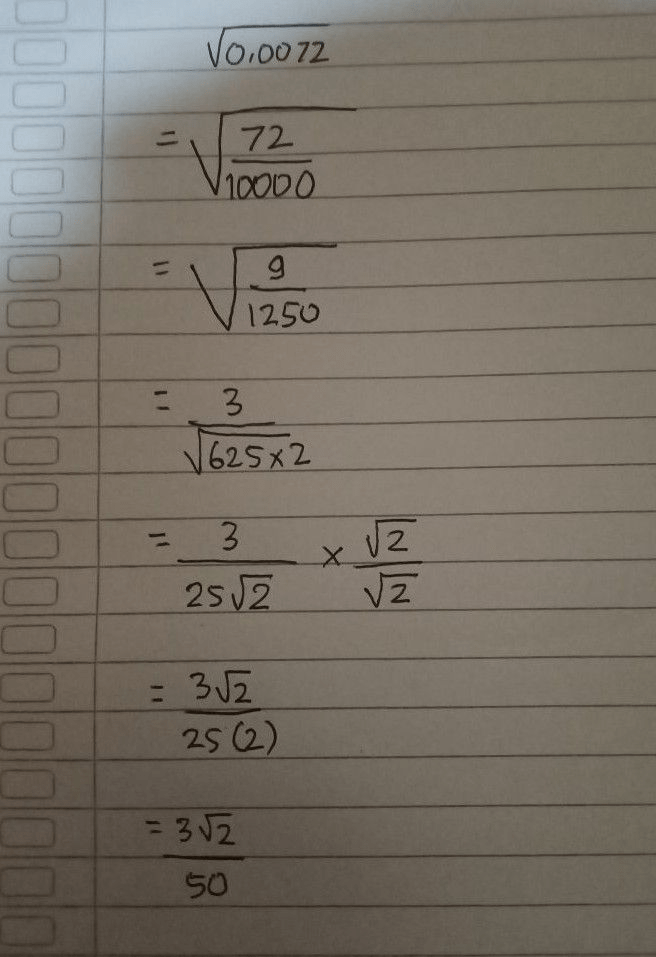 √0.0072
= √(72/10000)
= √(9/1250)
= 3/√(625×2)
= 3/(25√2) × √2/√2
= 3√2/25(2)
= 3√2/50